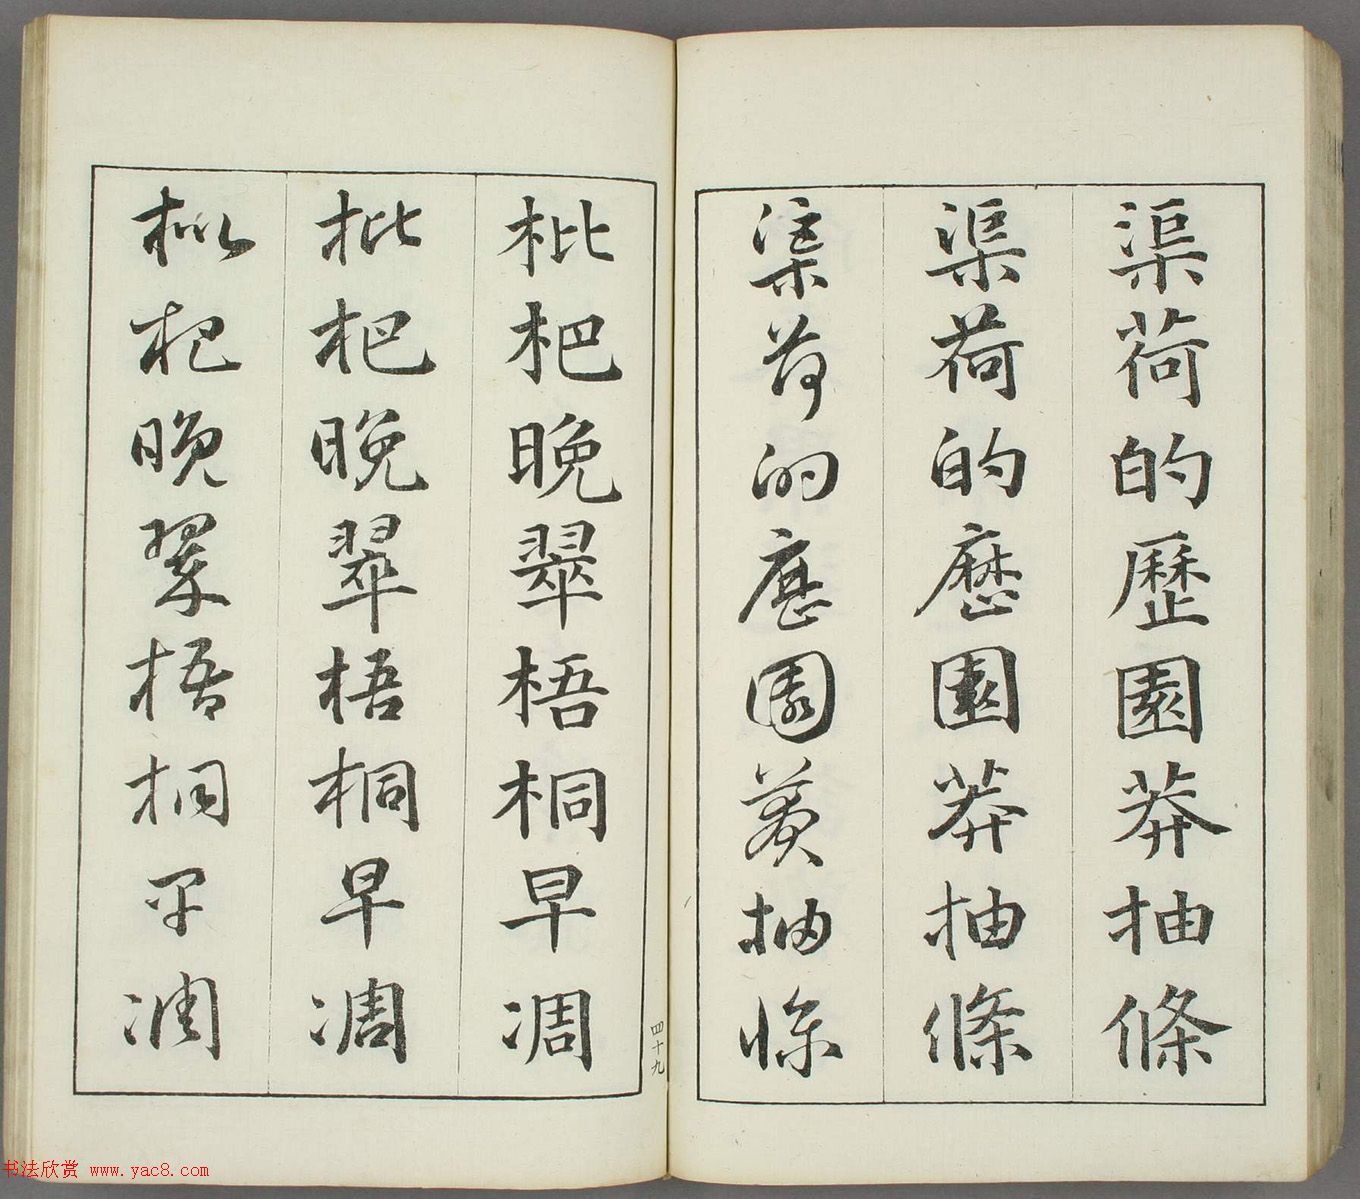 渠荷的歷園莽抽條
渠荷的歷園莽抽條
渠荷的歷園莽抽條
四十九
枇杷晚翠梧桐早凋
枇杷晚翠梧桐早凋
枇杷晚翠梧桐早凋
书法欣赏 www.yac8.com